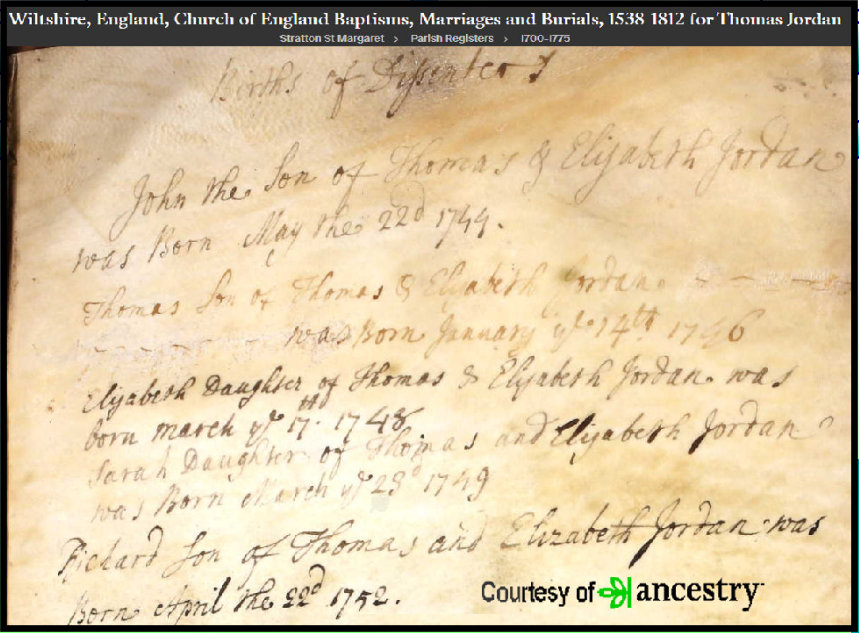 Wiltshire, England, Church of England Baptisms, Marriages and Burials, 1538-1812 for Thomas Jordan
Stratton St Margaret > Parish Registers > 1700-1775
Births of Dissenters
John the Son of Thomas & Elizabeth Jordan
was Born May the 22d 1744.
Thomas Son of Thomas & Elizabeth Jordan
was Born January ye 14th 1746
Elyabeth Daughter of Thomas & Elyabeth Jordan was
born march ye 17th 1748
Sarah Daughter of Thomas and Elyabeth Jordan
was Born March ye 23d 1749
Richard Son of Thomas and Elizabeth Jordan was
Born April the 22d 1752.
Courtesy of ancestry